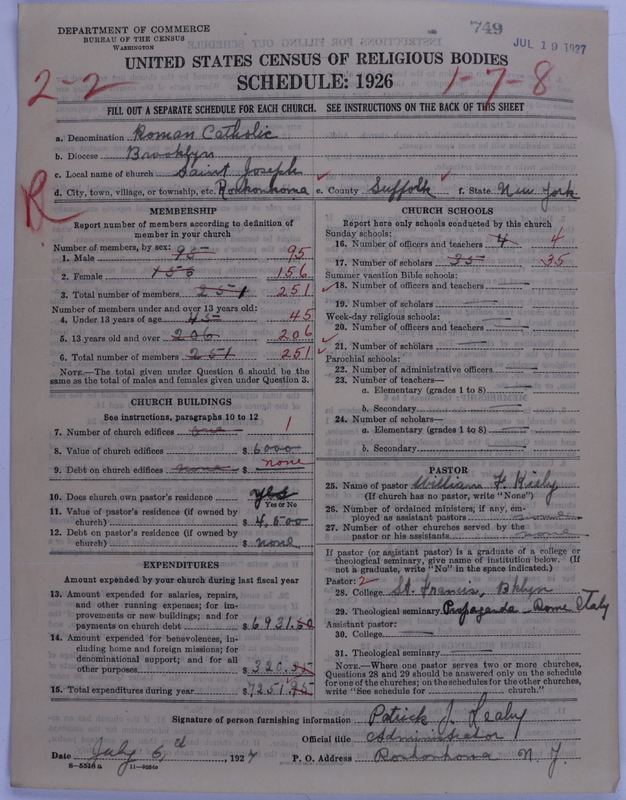 749
DEPARTMENT OF COMMERCE
BUREAU OF THE CENSUS
WASHINGTON
JUL 19 1927
UNITED STATES CENSUS OF RELIGIOUS BODIES
2-2
SCHEDULE: 1926
1-7-8
FILL OUT A SEPARATE SCHEDULE FOR EACH CHURCH. SEE INSTRUCTIONS ON THE BACK OF THIS SHEET
a. Denomination Roman Catholic
b. Diocese Brooklyn
c. Local name of church Saint Joseph
d. City, town, village, or township, etc. Ronkonkoma e. County Suffolk f. State New York
R
MEMBERSHIP
Report number of members according to definition of
member in your church
Number of members, by sex:
1. Male 95 95
2. Female 156 156
3. Total number of members 251 251
Number of members under and over 13 years old:
4. Under 13 years of age 45 45
5. 13 years old and over 206 206
6. Total number of members 251 251
NOTE.—The total given under Question 6 should be the
same as the total of males and females given under Question 3.
CHURCH BUILDINGS
See instructions, paragraphs 10 to 12
7. Number of church edifices one 1
8. Value of church edifices $ 6000
9. Debt on church edifices none $ none
10. Does church own pastor's residence yes
Yes or No
11. Value of pastor's residence (if owned by
church) $ 4,500
12. Debt on pastor's residence (if owned by
church) $ none
EXPENDITURES
Amount expended by your church during last fiscal year
13. Amount expended for salaries, repairs,
and other running expenses; for im-
provements or new buildings; and for
payments on church debt $ 6931.50
14. Amount expended for benevolences, in-
cluding home and foreign missions; for
denominational support; and for all
other purposes $ 320.
15. Total expenditures during year $ 7251.
CHURCH SCHOOLS
Report here only schools conducted by this church
Sunday schools:
16. Number of officers and teachers 4 4
17. Number of scholars 35 35
Summer vacation Bible schools:
18. Number of officers and teachers
19. Number of scholars
Week-day religious schools:
20. Number of officers and teachers
21. Number of scholars
Parochial schools:
22. Number of administrative officers
23. Number of teachers—
a. Elementary (grades 1 to 8)
b. Secondary
24. Number of scholars—
a. Elementary (grades 1 to 8)
b. Secondary
PASTOR
25. Name of pastor William F.
(If church has no pastor, write "None")
26. Number of ordained ministers, if any, em-
ployed as assistant pastors none
27. Number of other churches served by the
pastor or his assistants none
If pastor (or assistant pastor) is a graduate of a college or
theological seminary, give name of institution below. (If
not a graduate, write "No" in the space indicated.)
Pastor: 2
28. College St. Francis, Bklyn
29. Theological seminary Propaganda - Rome Italy
Assistant pastor:
30. College
31. Theological seminary
NOTE.—Where one pastor serves two or more churches,
Questions 28 and 29 should be answered only on the schedule
for one of the churches; on the schedules for the other churches,
write "See schedule for church."
Signature of person furnishing information Patrick J. Healy
Official title Administrator
Date July 6, 1927 P. O. Address Ronkonkoma N. Y.
8—5518 a